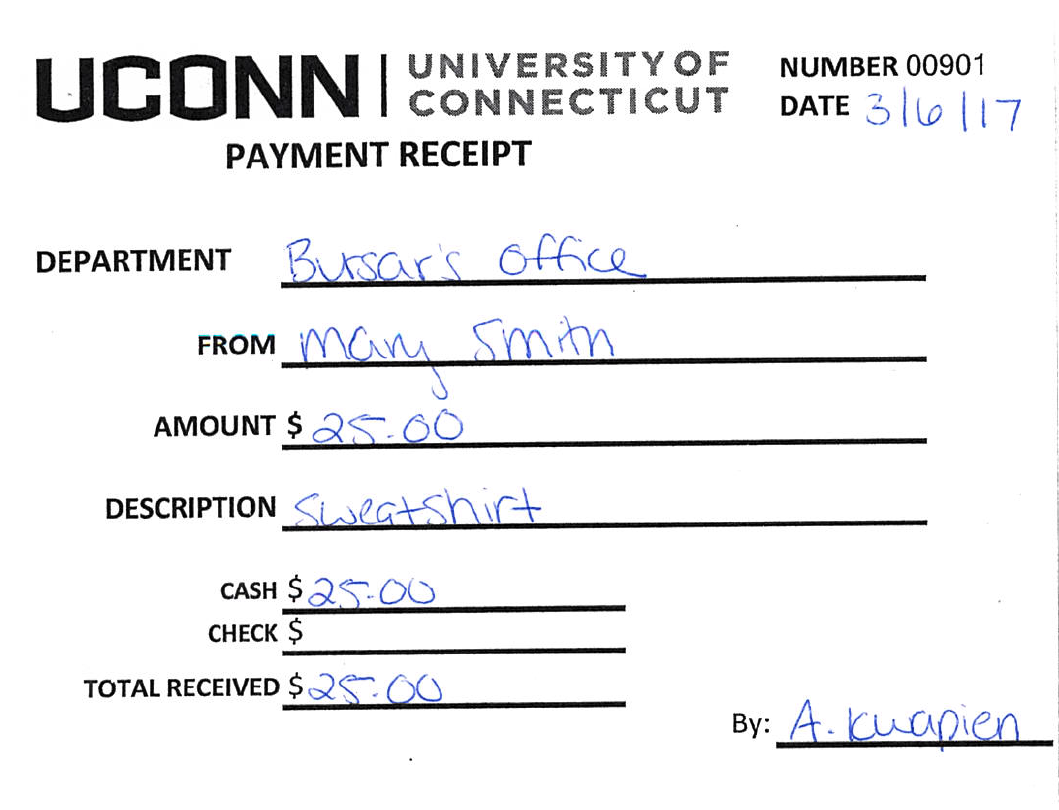 UCONN | UNIVERSITY OF CONNECTICUT
NUMBER 00901
DATE 3/6/17
PAYMENT RECEIPT
DEPARTMENT Bursar's Office
FROM Mary Smith
AMOUNT $ 25.00
DESCRIPTION Sweatshirt
CASH $ 25.00
CHECK $
TOTAL RECEIVED $ 25.00
By: A. Kwapien